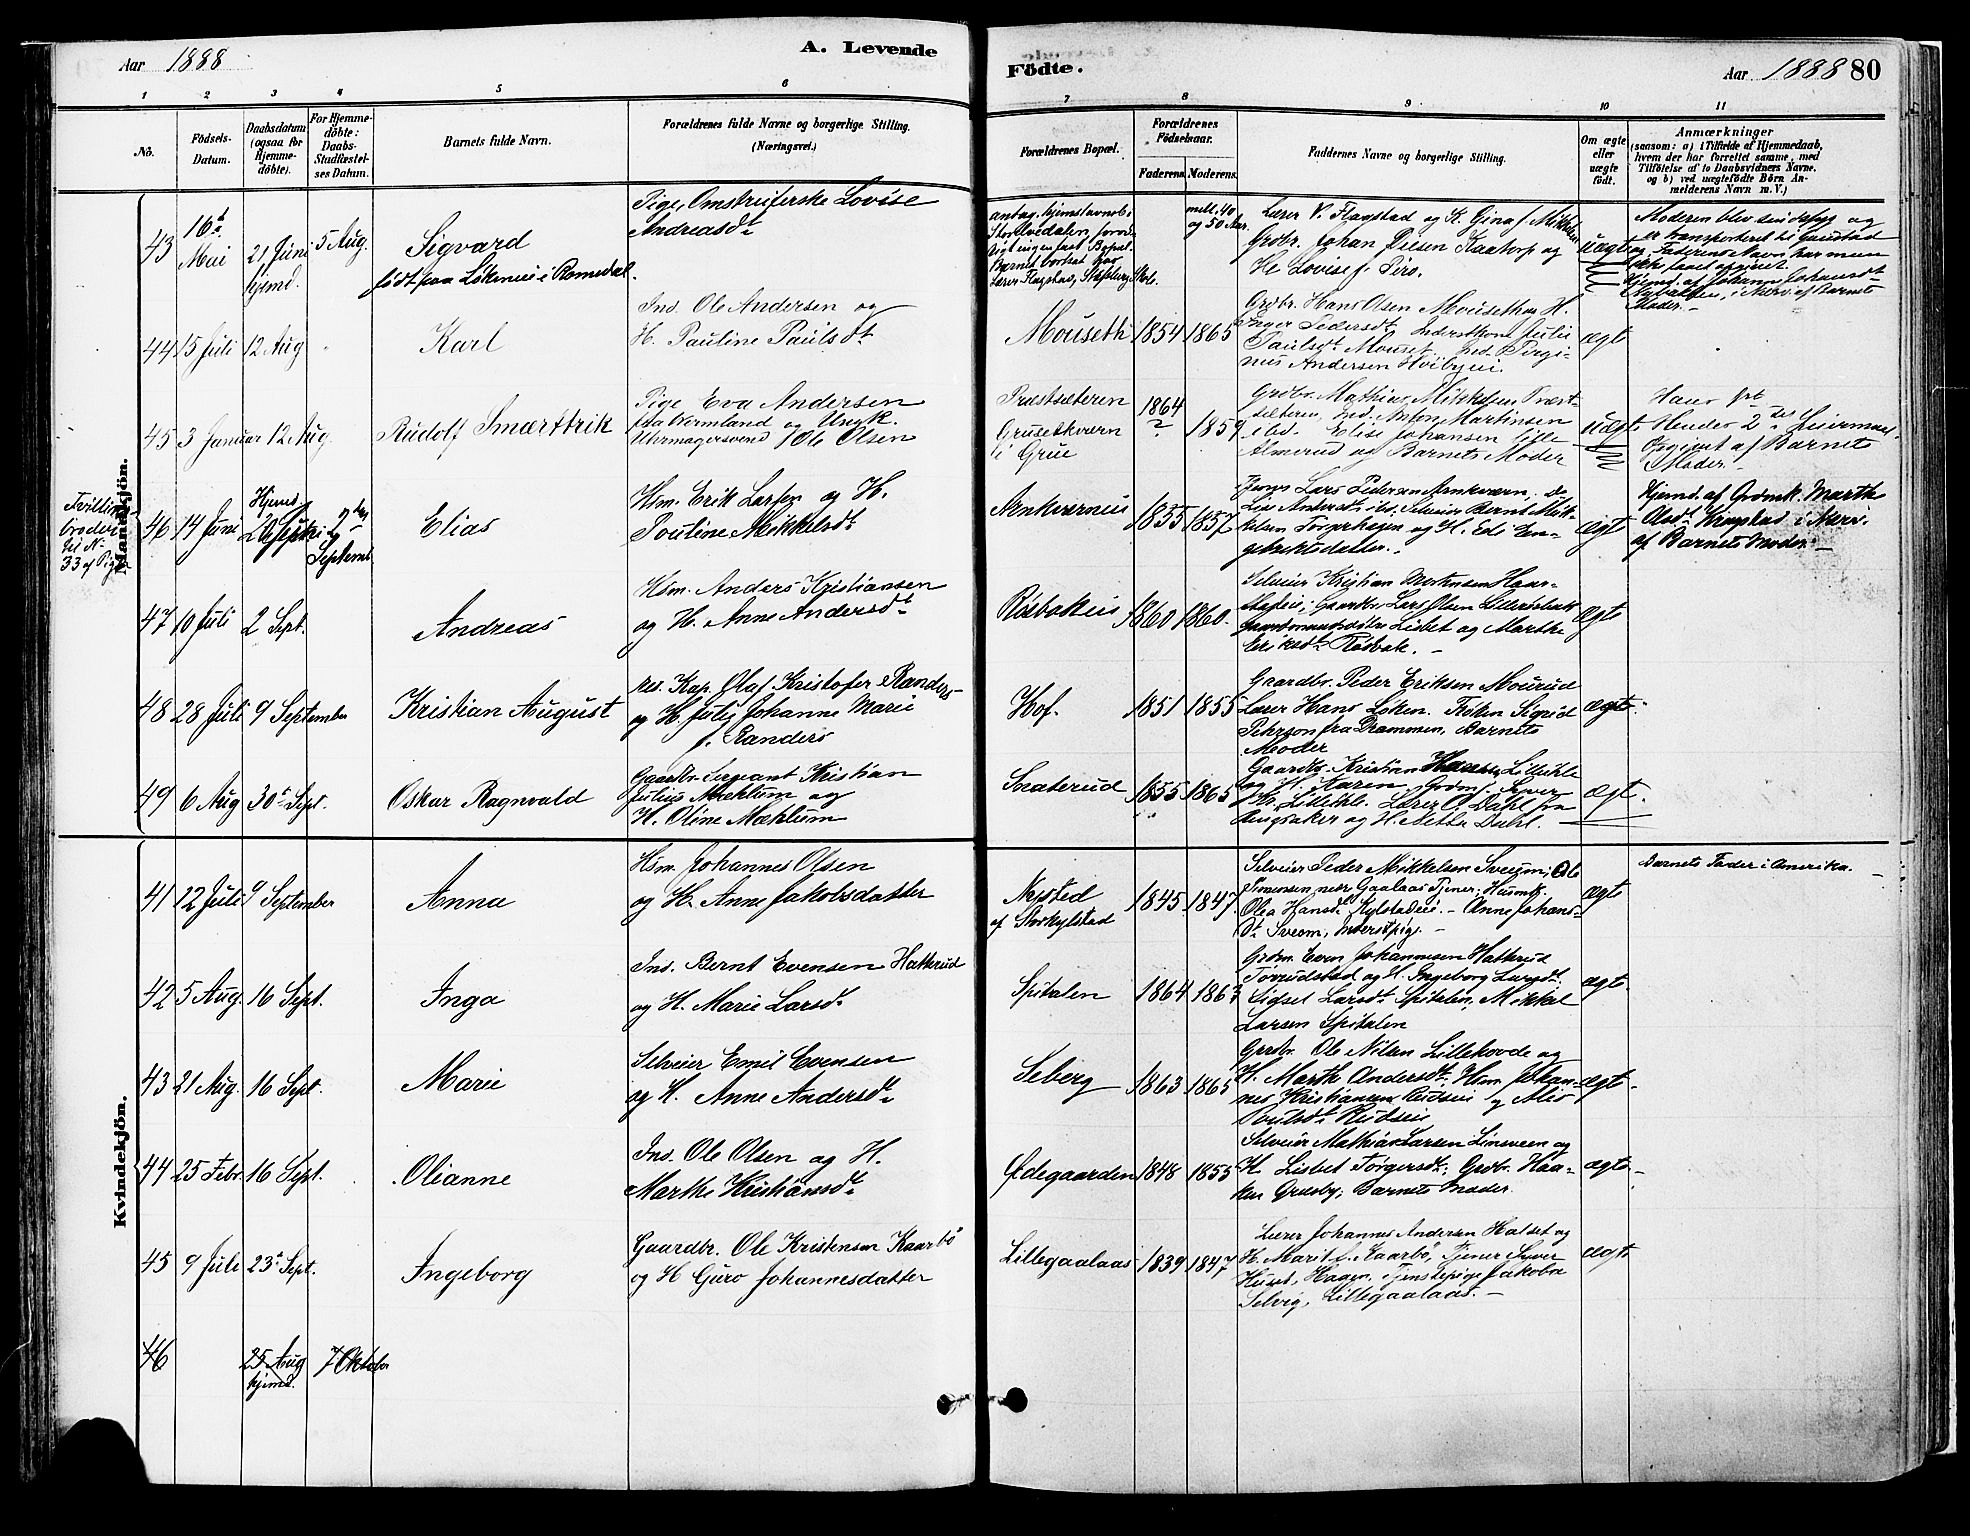 Aar 1888
A. Levende
Födte.
Aar 1888 80
1 2 3 4 5 6
7 8 9 10 11
No.
Födsels-
Datum.
Daabsdatum
(ogsaa for
Hjemme-
döbte).
For Hjemme-
döbte:
Daabs-
Stadfæstel-
ses Datum.
Barnets fulde Navn.
Forældrenes fulde Navne og borgerlige Stilling.
(Næringsvei.)
Forældrenes Bopæl.
Forældrenes
Födselsaar.
Faderens. Moderens.
Faddernes Navne og borgerlige Stilling.
Om ægte
eller
uægte
födt.
Anmærkninger
(saasom: a) i Tilfælde af Hjemmedaab,
hvem der har forrettet samme, med
Tilföielse af to Daabsvidners Navne,
og b) ved uægtefödte Börn An-
melderens Navn m. V.)
Mandkjön.
43
16d
Mai
21 Juni
hjemd.
5 Aug.
Sigvard
född paa Lökeneie i Romedal.
Pige, Omstreiferske Lovise
Andreasdt
mell. 40
og 50 Aar.
Lærer V. Flagstad og K. Gina f. Mikkelsen
Grdbr. Johan Olsen Kaatorp og
H. Lovise f. Pers.
uægte
Moderen blev sindssyg og
er transporteret til Gaustad
og Faderens Navn har man
ikke faaet opgivet.
Hjemd. af Johanne Johansdt
i Nærv. af Barnets
Moder. -
44
15 Juli
12 Aug
Karl
Ind. Ole Andersen og
H. Pauline Paulsdt
Mouseth
1854 1865
Grdbr. Hans Olsen Mouseth og H.
Inger Pedersdt, Inderstkone Julie
Paulsdt Mouset, Ind. Pergi-
nus Andersen Hvibyeie.
ægte
45
3 Januar
12 Aug.
Rudolf Smærtrik
Pige Eva Andersen
fra Vermland og Ungk.
Uhrmagersvend Ole Olsen
Præstsæteren
Grusetkværn
i Grue
1864
?
1859
Grdbr. Mathias Mikkelsen Præst-
sæteren, Ind. Anton Martinsen
ibd. Elise Johansen Lille
Almerud og Barnets Moder
uægte
Haus frb
Hendes 2det Leiermaal.
Opgivet af Barnets
Moder. -
Tvilling-
broder
til No
33 af Piger
46
14 Juni
Hjemd
2den
Septemb.
Elias
Hsm. Erik Larsen og H.
Pouline Mikkelsdt
Arnkværneie
1855 1857
Jons Lars Pedersen Arnkværn,
Lie Andersdt ibd. Selveier Bernt Mik-
kelsen Torgerhagen og H. Edi En-
gebrektsdatter.
ægte
Hjemd. af Grdmk. Marthe
Olsdt Krogstad i Nærv.
af Barnets Moder. -
47
10 Juli
2 Sept.
Andreas
Hsm. Anders Kristiansen
og H. Anne Andersdt
Rösbakeie
1860 1860.
Selveier Kristian Mortensen Haar-
stadeie, Gaardbr. Lars Olsen
Lisbet og Marthe
Eriksdt Rösbak. -
ægte
48
28 Juli
9 September
Kristian August
res. Kap. Olaf Kristofer Randers
og H. Julie Johanne Marie
f. Randers
Hof.
1851 1855
Gaardbr. Peder Eriksen Mourud
Lærer Hans Löken. Fröken Sigrid
Pehrson fra Drammen, Barnets
Moder
ægte
49
6 Aug
30te Sept.
Oskar Ragnvald
Gaardbr. Sergeant Kristian
Julius Mæhlum og
H. Oline Mæhlum
Snaterud
1855 1865
Gaardbr. Kristian Lilleihle
og H. Karen, Grdm. Syver
Kr. Lilleihle. Lærer O. Dahl fra
Ringsaker og H. Nethe Dahl.
ægte
Kvindekjön.
41
12 Juli
9 September
Anna
Hsm. Johannes Olsen
og H. Anne Jakobsdatter
Nysted
af Storkylstad
1845 1847
Selveier Peder Mikkelsen Sveum, Ole
Simensen nære Gaalaas Tjener, Husmk.
Olea Hansdt Kylstadeie. - Anne Johans-
dt Sveom, Inderstpige. -
ægte
Barnets Fader i Amerika. -
42
5 Aug.
16 Sept.
Inga
Ind. Bernt Evensen Hatterud
og H. Marie Larsdt
Spitalen
1864 1863
Grdm. Even Johannesen Hatterud
Torrudstad og H. Ingeborg Larsdt;
Lidsel Larsdt Spitalen, Mikkel
Larsen Spitalen
ægte
43
21 Aug.
16 Sept.
Marie
Selveier Emil Evensen
og H. Anne Andersdt
Seberg
1863 1865
Grdbr. Ole Nilsen Lillekovde og
H. Marth Andersdt, Hsm. Johan-
nes Kristiansen Rudseie og Alis
Poulsdt Rudseie
ægte
44
25 Febr.
16 Sept.
Olianne
Ind. Ole Olsen og H.
Marthe Kristiansdt
Ødegaarden
1848 1855
Selveier Mathias Larsen Linsveen og
H. Lisbet Torgersdt; Grdbr. Haa-
ken Grusby; Barnets Moder.
ægte
45
9 Juli
23de Sept.
Ingeborg
Gaardbr. Ole Kristensen Kaarbö
og H Guro Johannesdatter
Lillegaalaas
1839 1847
Lærer Johannes Andersen Halset og
H. Marit f. Kaarbö, Tjener Syver
Huset, Hagen, Tjenstepige Jakoba
Selvig, Lillegaalaas. -
ægte
46
25 Aug
hjemd.
7 Oktober